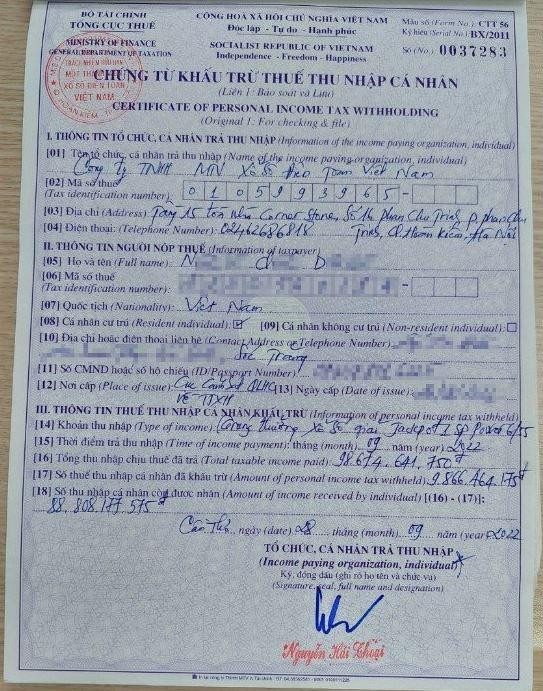 BỘ TÀI CHÍNH
TỔNG CỤC THUẾ
MINISTRY OF FINANCE
GENERAL DEPARTMENT OF TAXATION
CỘNG HÒA XÃ HỘI CHỦ NGHĨA VIỆT NAM
Độc lập - Tự do - Hạnh phúc
SOCIALIST REPUBLIC OF VIETNAM
Independence - Freedom - Happiness
Mẫu số (Form No.) CTT 56
Ký hiệu (Serial No.) BX/2011
Số (No.) 0037283
TRÁCH NHIỆM HỮU HẠN
MỘT THÀNH VIÊN
XỔ SỐ ĐIỆN TOÁN
VIỆT NAM
CHỨNG TỪ KHẤU TRỪ THUẾ THU NHẬP CÁ NHÂN
(Liên 1: Báo soát và Lưu)
CERTIFICATE OF PERSONAL INCOME TAX WITHHOLDING
(Original 1: For checking & file)
I. THÔNG TIN TỔ CHỨC, CÁ NHÂN TRẢ THU NHẬP (Information of the income paying organization, individual)
[01] Tên tổ chức, cá nhân trả thu nhập (Name of the income paying organization, individual)
Công ty TNHH MTV Xổ Số Điện Toán Việt Nam
[02] Mã số thuế
(Tax identification number) 0 1 0 5 9 9 3 9 6 5 -
[03] Địa chỉ (Address) Tầng 15 tòa nhà Corner Stone, Số 16 Phan Chu Trinh, P. Phan Chu
[04] Điện thoại: (Telephone Number) 02462686818 Trinh, Q. Hoàn Kiếm, Hà Nội
II. THÔNG TIN NGƯỜI NỘP THUẾ (Information of taxpayer)
[05] Họ và tên (Full name): N
[06] Mã số thuế
(Tax identification number):
[07] Quốc tịch (Nationality): Việt Nam
[08] Cá nhân cư trú (Resident individual): [09] Cá nhân không cư trú (Non-resident individual):
[10] Địa chỉ hoặc điện thoại liên hệ (Contact Address or Telephone Number)
Sóc Trăng
[11] Số CMND hoặc số hộ chiếu (ID/Passport Number)
[12] Nơi cấp (Place of issue): Cục Cảnh sát QLHC [13] Ngày cấp (Date of issue):
Về TTXH
III. THÔNG TIN THUẾ THU NHẬP CÁ NHÂN KHẤU TRỪ (Information of personal income tax withheld)
[14] Khoản thu nhập (Type of income) trúng thưởng Xổ Số giải Jackpot 1 SP Power 6/55
[15] Thời điểm trả thu nhập (Time of income payment): tháng (month) 09 năm (year) 2022
[16] Tổng thu nhập chịu thuế đã trả (Total taxable income paid): 98.674.641.750đ
[17] Số thuế thu nhập cá nhân đã khấu trừ (Amount of personal tax withheld) 9.866.464.175đ
[18] Số thu nhập cá nhân còn được nhận (Amount of income received by individual) [(16) - (17)]:
88.808.177.575đ
Cần Thơ, ngày (date) 28 tháng (month) 09 năm (year) 2022
TỔ CHỨC, CÁ NHÂN TRẢ THU NHẬP
(Income paying organization, individual)
Ký, đóng dấu (ghi rõ họ tên và chức vụ)
(Signature, seal, full name and designation)
Nguyễn Hải Thoại